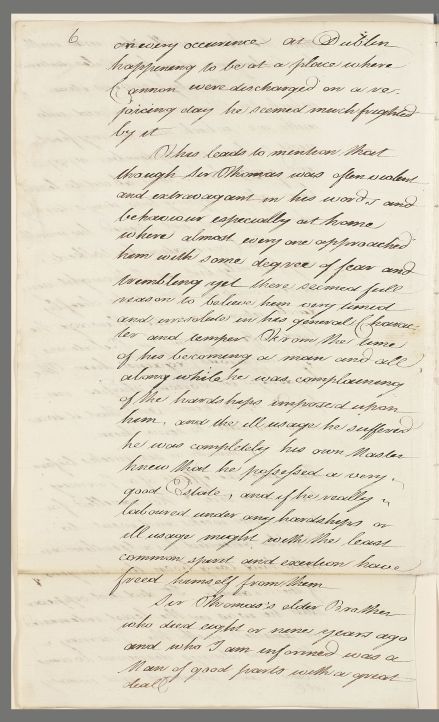 6
on every occurrence at Dublin
happening to be at a place where
Cannon were discharged on a re-
joicing day he seemed much frighted
by it
This leads to mention that
though Sir Thomas was often violent
and extravagant in his words and
behaviour especially at home
where almost every one approached
him with some degree of fear and
trembling yet there seemed full
reason to believe him very timed
and irresolute in his general Charac-
ter and temper. From the time
of his becoming a man and all
along while he was complaining
of the hardships imposed upon
him, and the ill usage he suffered
he was completely his own Master
knew that he possessed a very
good Estate, and if he really
laboured under any hardships or
ill usage might with the least
common spirit and exertion have
freed himself from them
Sir Thomas's elder Brother
who died eight or nine years ago
and who I am informed was a
Man of good parts with a great
deal